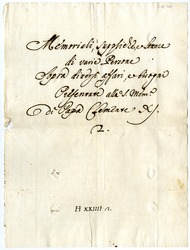 Memoriali, Suppliche, e Lettere
di varie Persone
Sopra diversi affari, e bisogni
Presentate alla S. Mem.
di Papa Clemente XI.
2.
H XXIIII